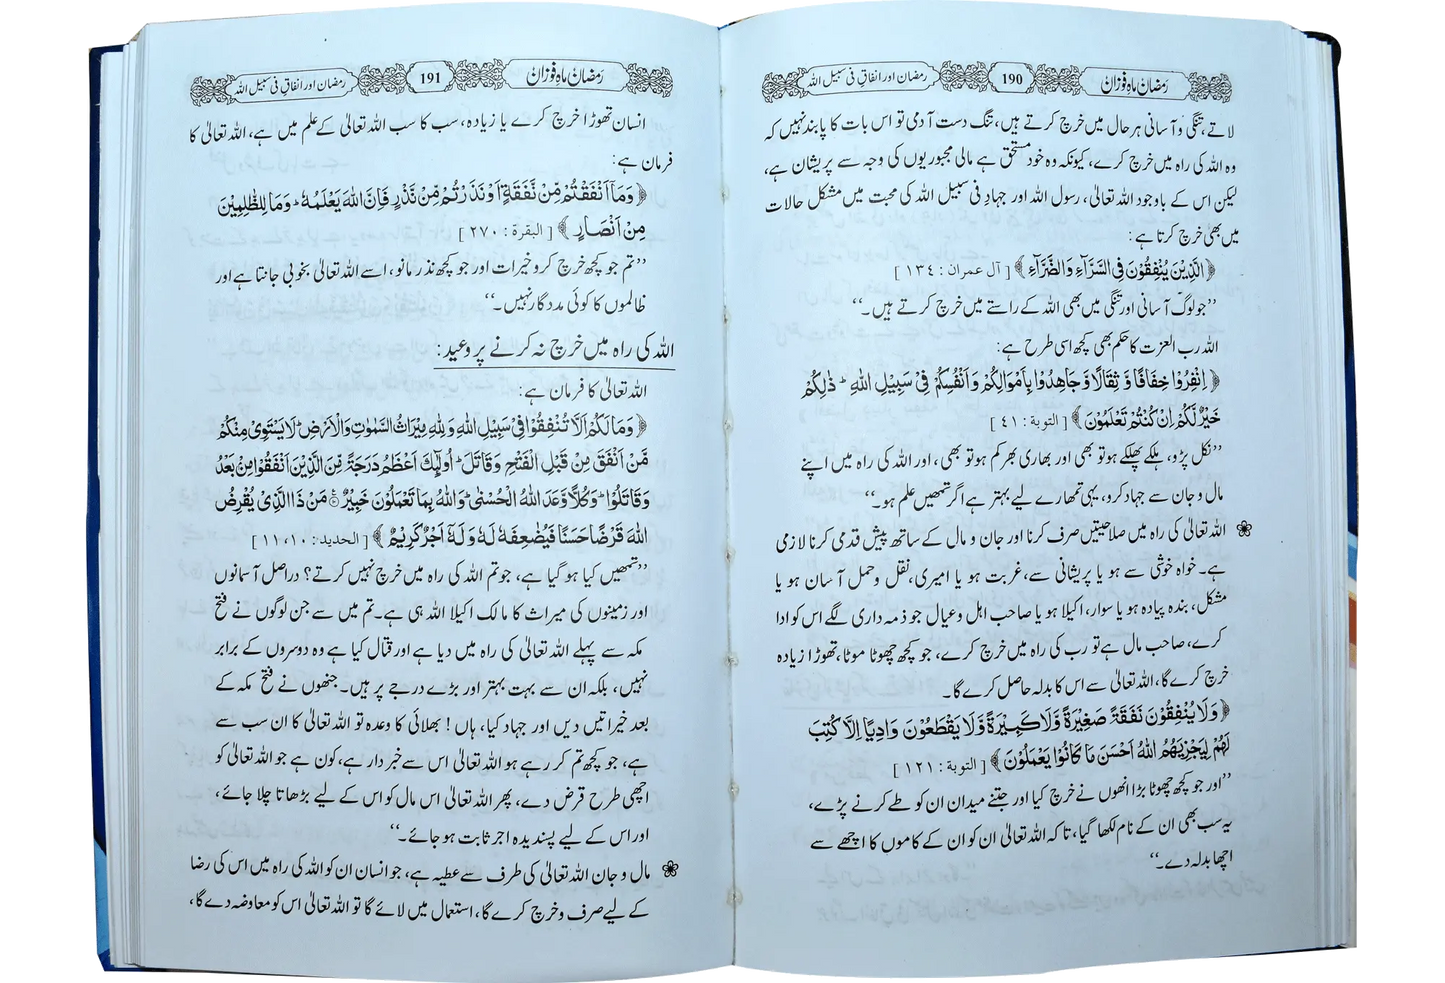 رمضان ماہِ فوزان
190
رمضان اور انفاق فی سبیل اللہ
لاتے، تنگی و آسانی ہر حال میں خرچ کرتے ہیں، تنگ دست آدمی تو اس بات کا پابند نہیں کہ
وہ اللہ کی راہ میں خرچ کرے، کیونکہ وہ خود مستحق ہے مالی مجبوریوں کی وجہ سے پریشان ہے،
لیکن اس کے باوجود اللہ تعالیٰ، رسول اللہ اور جہادِ فی سبیل اللہ کی محبت میں مشکل حالات
میں بھی خرچ کرتا ہے:
﴿ الَّذِيْنَ يُنْفِقُوْنَ فِي السَّرَّآءِ وَالضَّرَّآءِ ﴾ [ آل عمران : ١٣٤ ]
’’جو لوگ آسانی اور تنگی میں بھی اللہ کے راستے میں خرچ کرتے ہیں۔‘‘
اللہ رب العزت کا حکم بھی کچھ اسی طرح ہے:
﴿ اِنْفِرُوْا خِفَافًا وَّ ثِقَالًا وَّ جَاهِدُوْا بِاَمْوَالِكُمْ وَ اَنْفُسِكُمْ فِيْ سَبِيْلِ اللّٰهِ ؕ ذٰلِكُمْ
خَيْرٌ لَّكُمْ اِنْ كُنْتُمْ تَعْلَمُوْنَ ﴾ [ التوبة : ٤١ ]
’’نکل پڑو، ہلکے پھلکے ہو تو بھی اور بھاری بھر کم ہو تو بھی، اور اللہ کی راہ میں اپنے
مال و جان سے جہاد کرو، یہی تمھارے لیے بہتر ہے اگر تمھیں علم ہو۔‘‘
❀ اللہ تعالیٰ کی راہ میں صلاحیتیں صرف کرنا اور جان و مال کے ساتھ پیش قدمی کرنا لازمی
ہے۔ خواہ خوشی سے ہو یا پریشانی سے، غربت ہو یا امیری، نقل و حمل آسان ہو یا
مشکل، بندہ پیادہ ہو یا سوار، اکیلا ہو یا صاحب اہل و عیال جو ذمہ داری لگے اس کو ادا
کرے، صاحب مال ہے تو رب کی راہ میں خرچ کرے، جو کچھ چھوٹا موٹا، تھوڑا زیادہ
خرچ کرے گا، اللہ تعالیٰ سے اس کا بدلہ حاصل کرے گا۔
﴿ وَلَا يُنْفِقُوْنَ نَفَقَةً صَغِيْرَةً وَّلَا كَبِيْرَةً وَّلَا يَقْطَعُوْنَ وَادِيًا اِلَّا كُتِبَ
لَهُمْ لِيَجْزِيَهُمُ اللّٰهُ اَحْسَنَ مَا كَانُوْا يَعْمَلُوْنَ ﴾ [ التوبة : ١٢١ ]
’’اور جو کچھ چھوٹا بڑا انھوں نے خرچ کیا اور جتنے میدان ان کو طے کرنے پڑے،
یہ سب بھی ان کے نام لکھا گیا، تاکہ اللہ تعالیٰ ان کو ان کے کاموں کا اچھے سے
اچھا بدلہ دے۔‘‘
رمضان ماہِ فوزان
191
رمضان اور انفاق فی سبیل اللہ
انسان تھوڑا خرچ کرے یا زیادہ، سب کا سب اللہ تعالیٰ کے علم میں ہے، اللہ تعالیٰ کا
فرمان ہے:
﴿ وَمَآ اَنْفَقْتُمْ مِّنْ نَّفَقَةٍ اَوْ نَذَرْتُمْ مِّنْ نَّذْرٍ فَاِنَّ اللّٰهَ يَعْلَمُهٗ ؕ وَمَا لِلظّٰلِمِيْنَ
مِنْ اَنْصَارٍ ﴾ [ البقرة : ٢٧٠ ]
’’تم جو کچھ خرچ کرو خیرات اور جو کچھ نذر مانو، اسے اللہ تعالیٰ بخوبی جانتا ہے اور
ظالموں کا کوئی مددگار نہیں۔‘‘
اللہ کی راہ میں خرچ نہ کرنے پر وعید:
اللہ تعالیٰ کا فرمان ہے:
﴿ وَمَا لَكُمْ اَلَّا تُنْفِقُوْا فِيْ سَبِيْلِ اللّٰهِ وَ لِلّٰهِ مِيْرَاثُ السَّمٰوٰتِ وَالْاَرْضِ ؕ لَا يَسْتَوِيْ مِنْكُمْ
مَّنْ اَنْفَقَ مِنْ قَبْلِ الْفَتْحِ وَ قَاتَلَ ؕ اُولٰٓئِكَ اَعْظَمُ دَرَجَةً مِّنَ الَّذِيْنَ اَنْفَقُوْا مِنْۢ بَعْدُ
وَ قَاتَلُوْا ؕ وَ كُلًّا وَّعَدَ اللّٰهُ الْحُسْنٰى ؕ وَاللّٰهُ بِمَا تَعْمَلُوْنَ خَبِيْرٌ ۞ مَنْ ذَا الَّذِيْ يُقْرِضُ
اللّٰهَ قَرْضًا حَسَنًا فَيُضٰعِفَهٗ لَهٗ وَ لَهٗٓ اَجْرٌ كَرِيْمٌ ﴾ [ الحديد : ١٠، ١١ ]
’’تمھیں کیا ہو گیا ہے، جو تم اللہ کی راہ میں خرچ نہیں کرتے؟ دراصل آسمانوں
اور زمینوں کی میراث کا مالک اکیلا اللہ ہی ہے۔ تم میں سے جن لوگوں نے فتح
مکہ سے پہلے اللہ تعالیٰ کی راہ میں دیا ہے اور قتال کیا ہے وہ دوسروں کے برابر
نہیں، بلکہ ان سے بہت بہتر اور بڑے درجے پر ہیں۔ جنھوں نے فتح مکہ کے
بعد خیراتیں دیں اور جہاد کیا، ہاں! بھلائی کا وعدہ تو اللہ تعالیٰ کا ان سب سے
ہے، جو کچھ تم کر رہے ہو اللہ تعالیٰ اس سے خبردار ہے، کون ہے جو اللہ تعالیٰ کو
اچھی طرح قرض دے، پھر اللہ تعالیٰ اس مال کو اس کے لیے بڑھاتا چلا جائے،
اور اس کے لیے پسندیدہ اجر ثابت ہو جائے۔‘‘
❀ مال و جان اللہ تعالیٰ کی طرف سے عطیہ ہے، جو انسان ان کو اللہ کی راہ میں اس کی رضا
کے لیے صرف و خرچ کرے گا، استعمال میں لائے گا تو اللہ تعالیٰ اس کو معاوضہ دے گا،